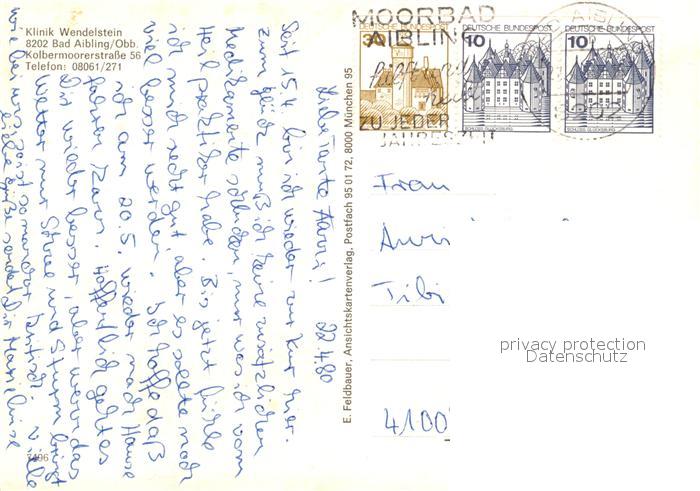 Klinik Wendelstein
8202 Bad Aibling/Obb.
Kolbermoorerstraße 56
Telefon: 08061/271
MOORBAD
AIBLING
hilft
ZU JEDER
JAHRESZEIT
BAD AIBLING
8202
DEUTSCHE BUNDESPOST
30
DEUTSCHE BUNDESPOST
10
SCHLOSS GLÜCKSBURG
DEUTSCHE BUNDESPOST
10
SCHLOSS GLÜCKSBURG
22.4.80
Liebe Tante Anni!
Seit 15.4. bin ich wieder zur Kur hier.
Zum Glück muß ich keine zusätzlichen
Medikamente schlucken, nur was ich vom
Heilpraktiker habe. Bis jetzt fühle
ich mich recht gut, aber es sollte noch
viel besser werden. Ich hoffe daß
ich am 20.5. wieder nach Hause
fahren kann. Hoffentlich geht es
Dir wieder besser, aber wenn das
Wetter nur Schnee und Sturm bringt
ist so mancher kritisch. Viele
liebe Grüße sendet Dir
E. Feldbauer, Ansichtskartenverlag, Postfach 95 01 72, 8000 München 95
Frau
Anni
Tibi
4100
7406
privacy protection
Datenschutz